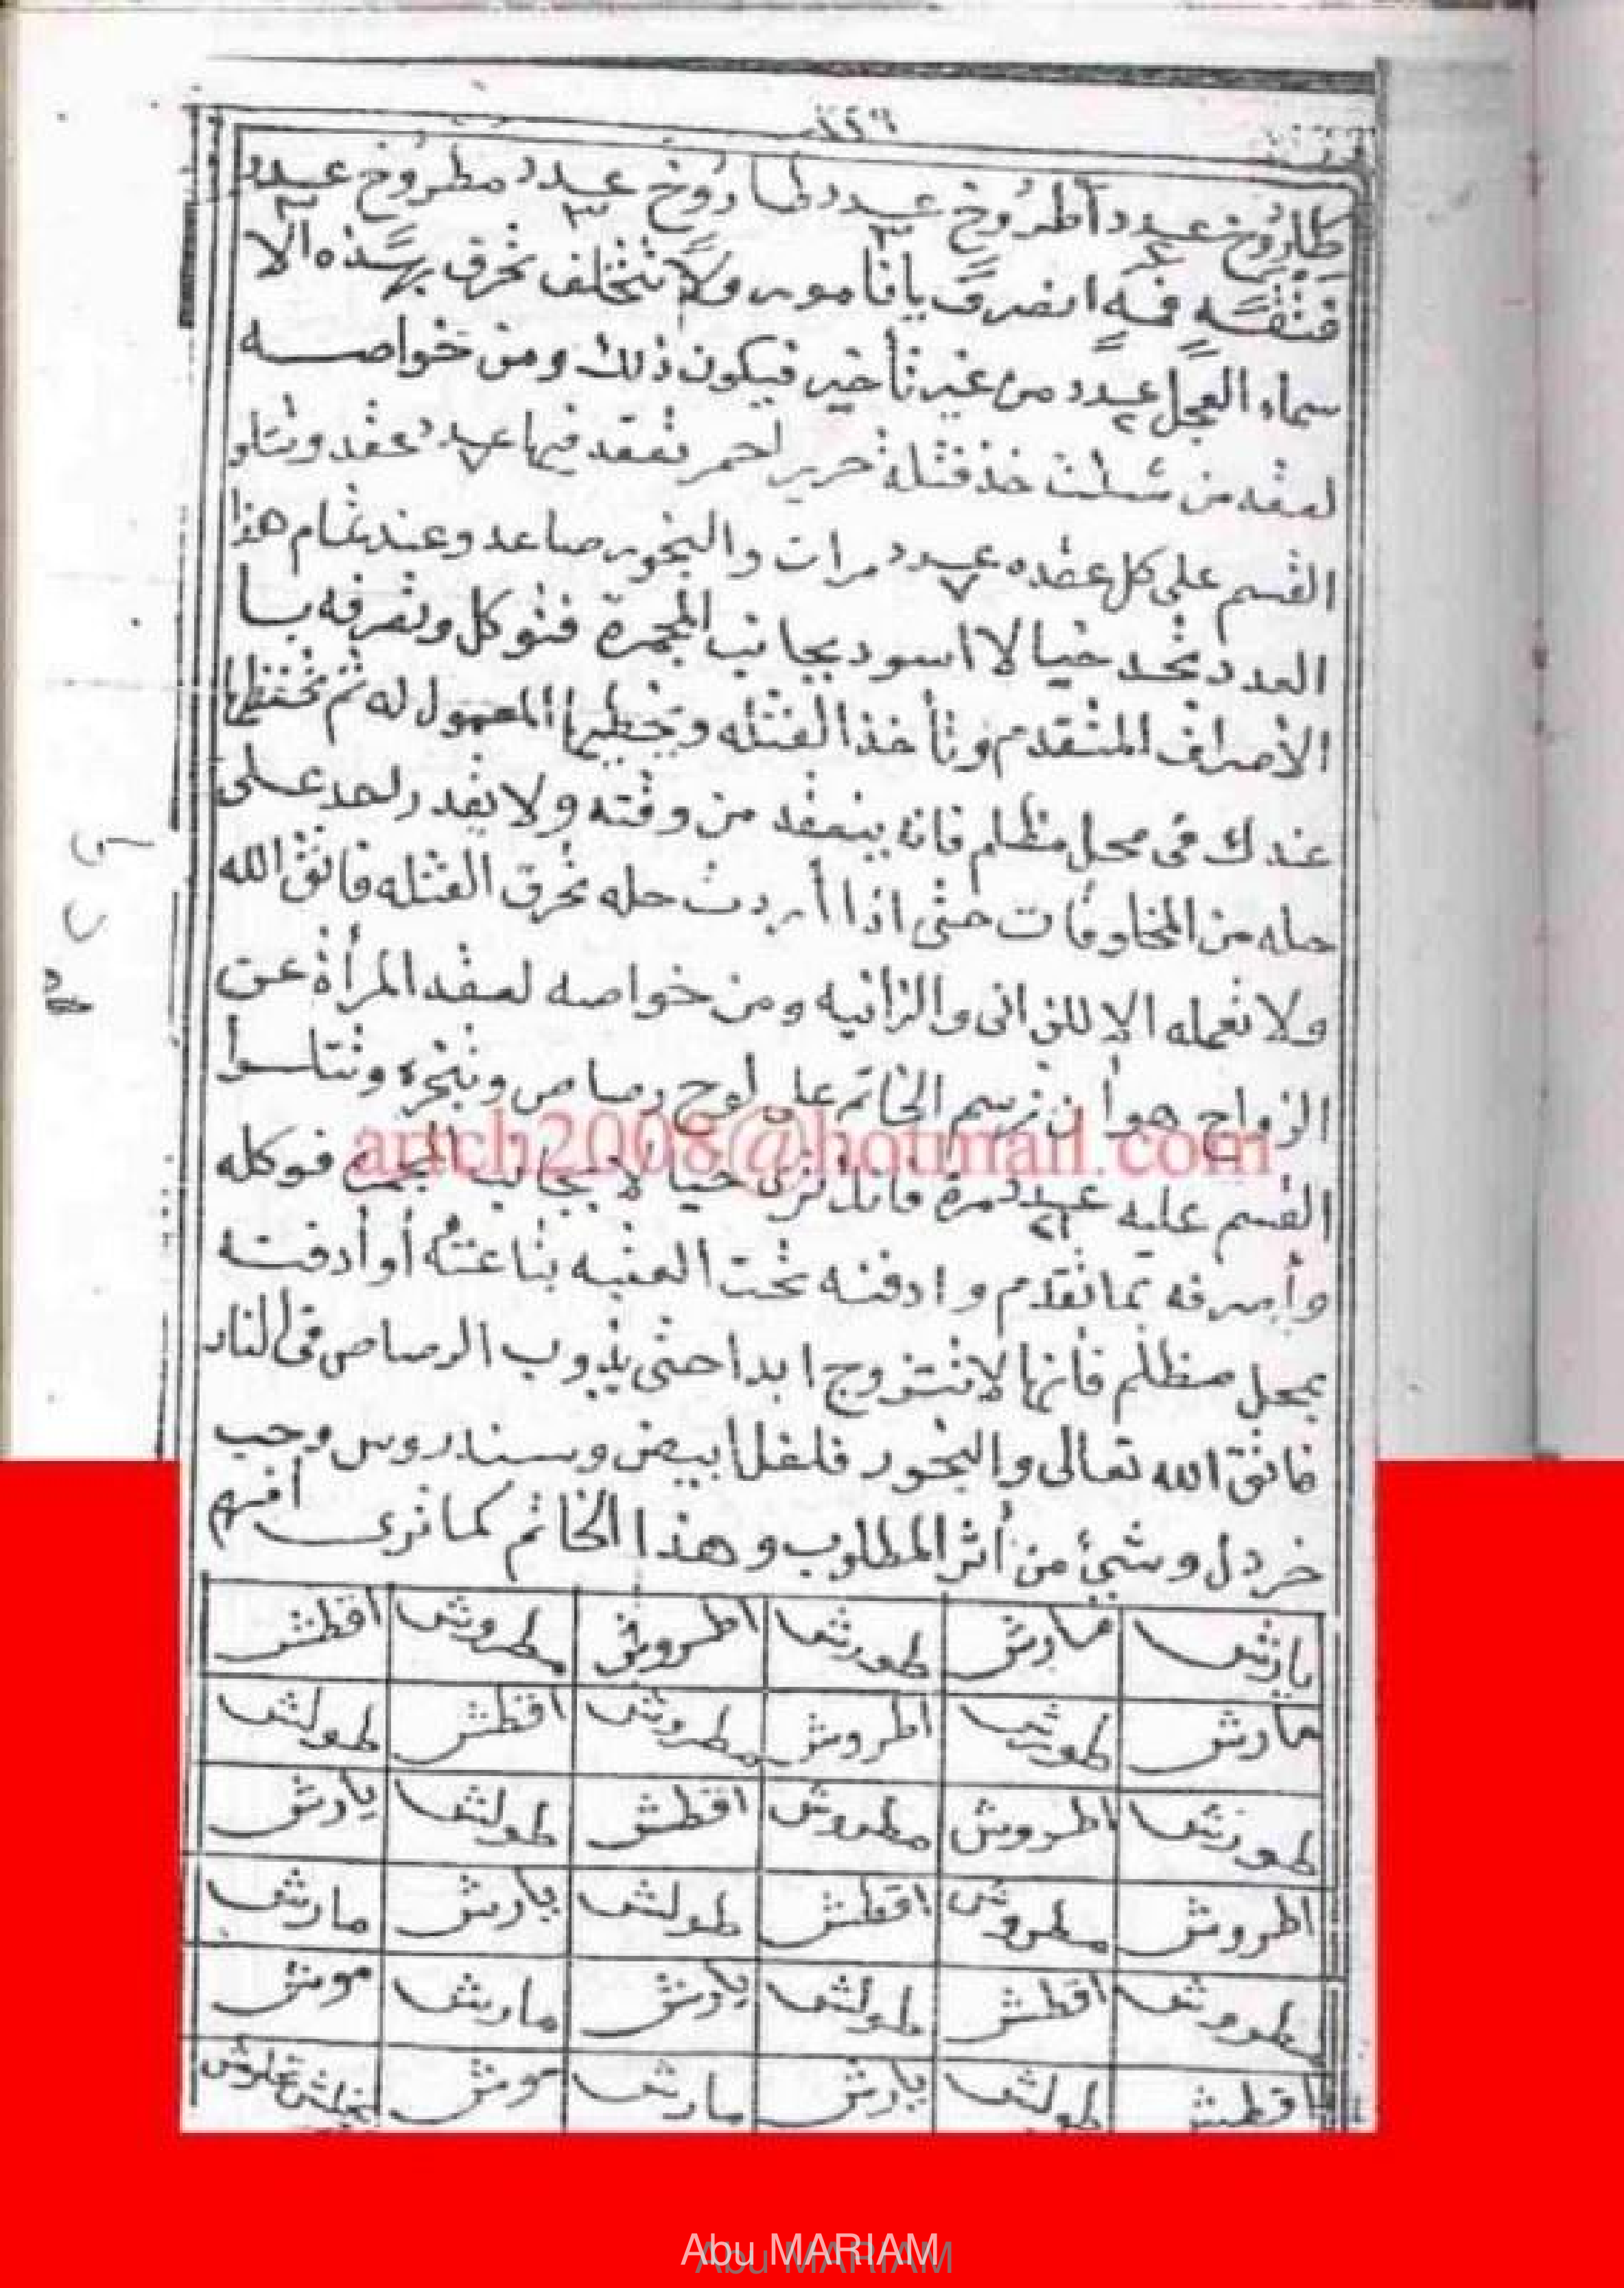 طاروخ عدد ٤ أطروخ عدد ٣ طاروخ عدد ٣ مطروخ عدد ٣
فتقه فه انصرف يا نامور ولا تتخلف تحرق بهذه الا
سماء العجل عدد ٢ من غير تأخير فيكون ذلك ومن خواصه
لعقد من شئت خذ فتلة حرير احمر تعقد فيها عدد ٧ عقد وتتلو
القسم على كل عقده عدد ٧ مرات والبخور صاعد وعند تمام هذا
العدد تجد خيالا اسود بجانب المجمرة فتوكل وتصرفه با
الأصراف المتقدم وتأخذ الفتله وتخطيها المعمول له ثم تحفظها
عندك فى محل مظلم فانه ينعقد من وقته ولا يقدر احد على
حله من المخلوقات حتى اذا أردت حله تحرق الفتله فاتق الله
ولا تعمله الا للزانى والزانيه ومن خواصه لعقد المرأة عن
الزواج هو أن ترسم الخاتم على لوح رصاص وتبخره وتتلوا
artch2008@hotmail.com
القسم عليه عدد ٢١ مرة فانك ترى خيالا بجانب المجمره فوكله
وأصرفه بما تقدم وادفنه تحت العتبه بتاعته أو أدفنه
بمحل مظلم فانها لا تتزوج ابدا حتى يذوب الرصاص فى النار
فاتق الله تعالى والبخور فلفل أبيض وسندروس وحب
خردل وشئ من أثر المطلوب وهذا الخاتم كما ترى افهم
يارش مارش طورش اطروش مطروش اقطش
مارش طورش اطروش مطروش اقطش طولش
طورش اطروش مطروش اقطش طولش يارش
اطروش مطروش اقطش طولش يارش مارش
مطروش اقطش طولش يارش مارش موش
اقطش طولش يارش مارش موش
Abu MARIAM